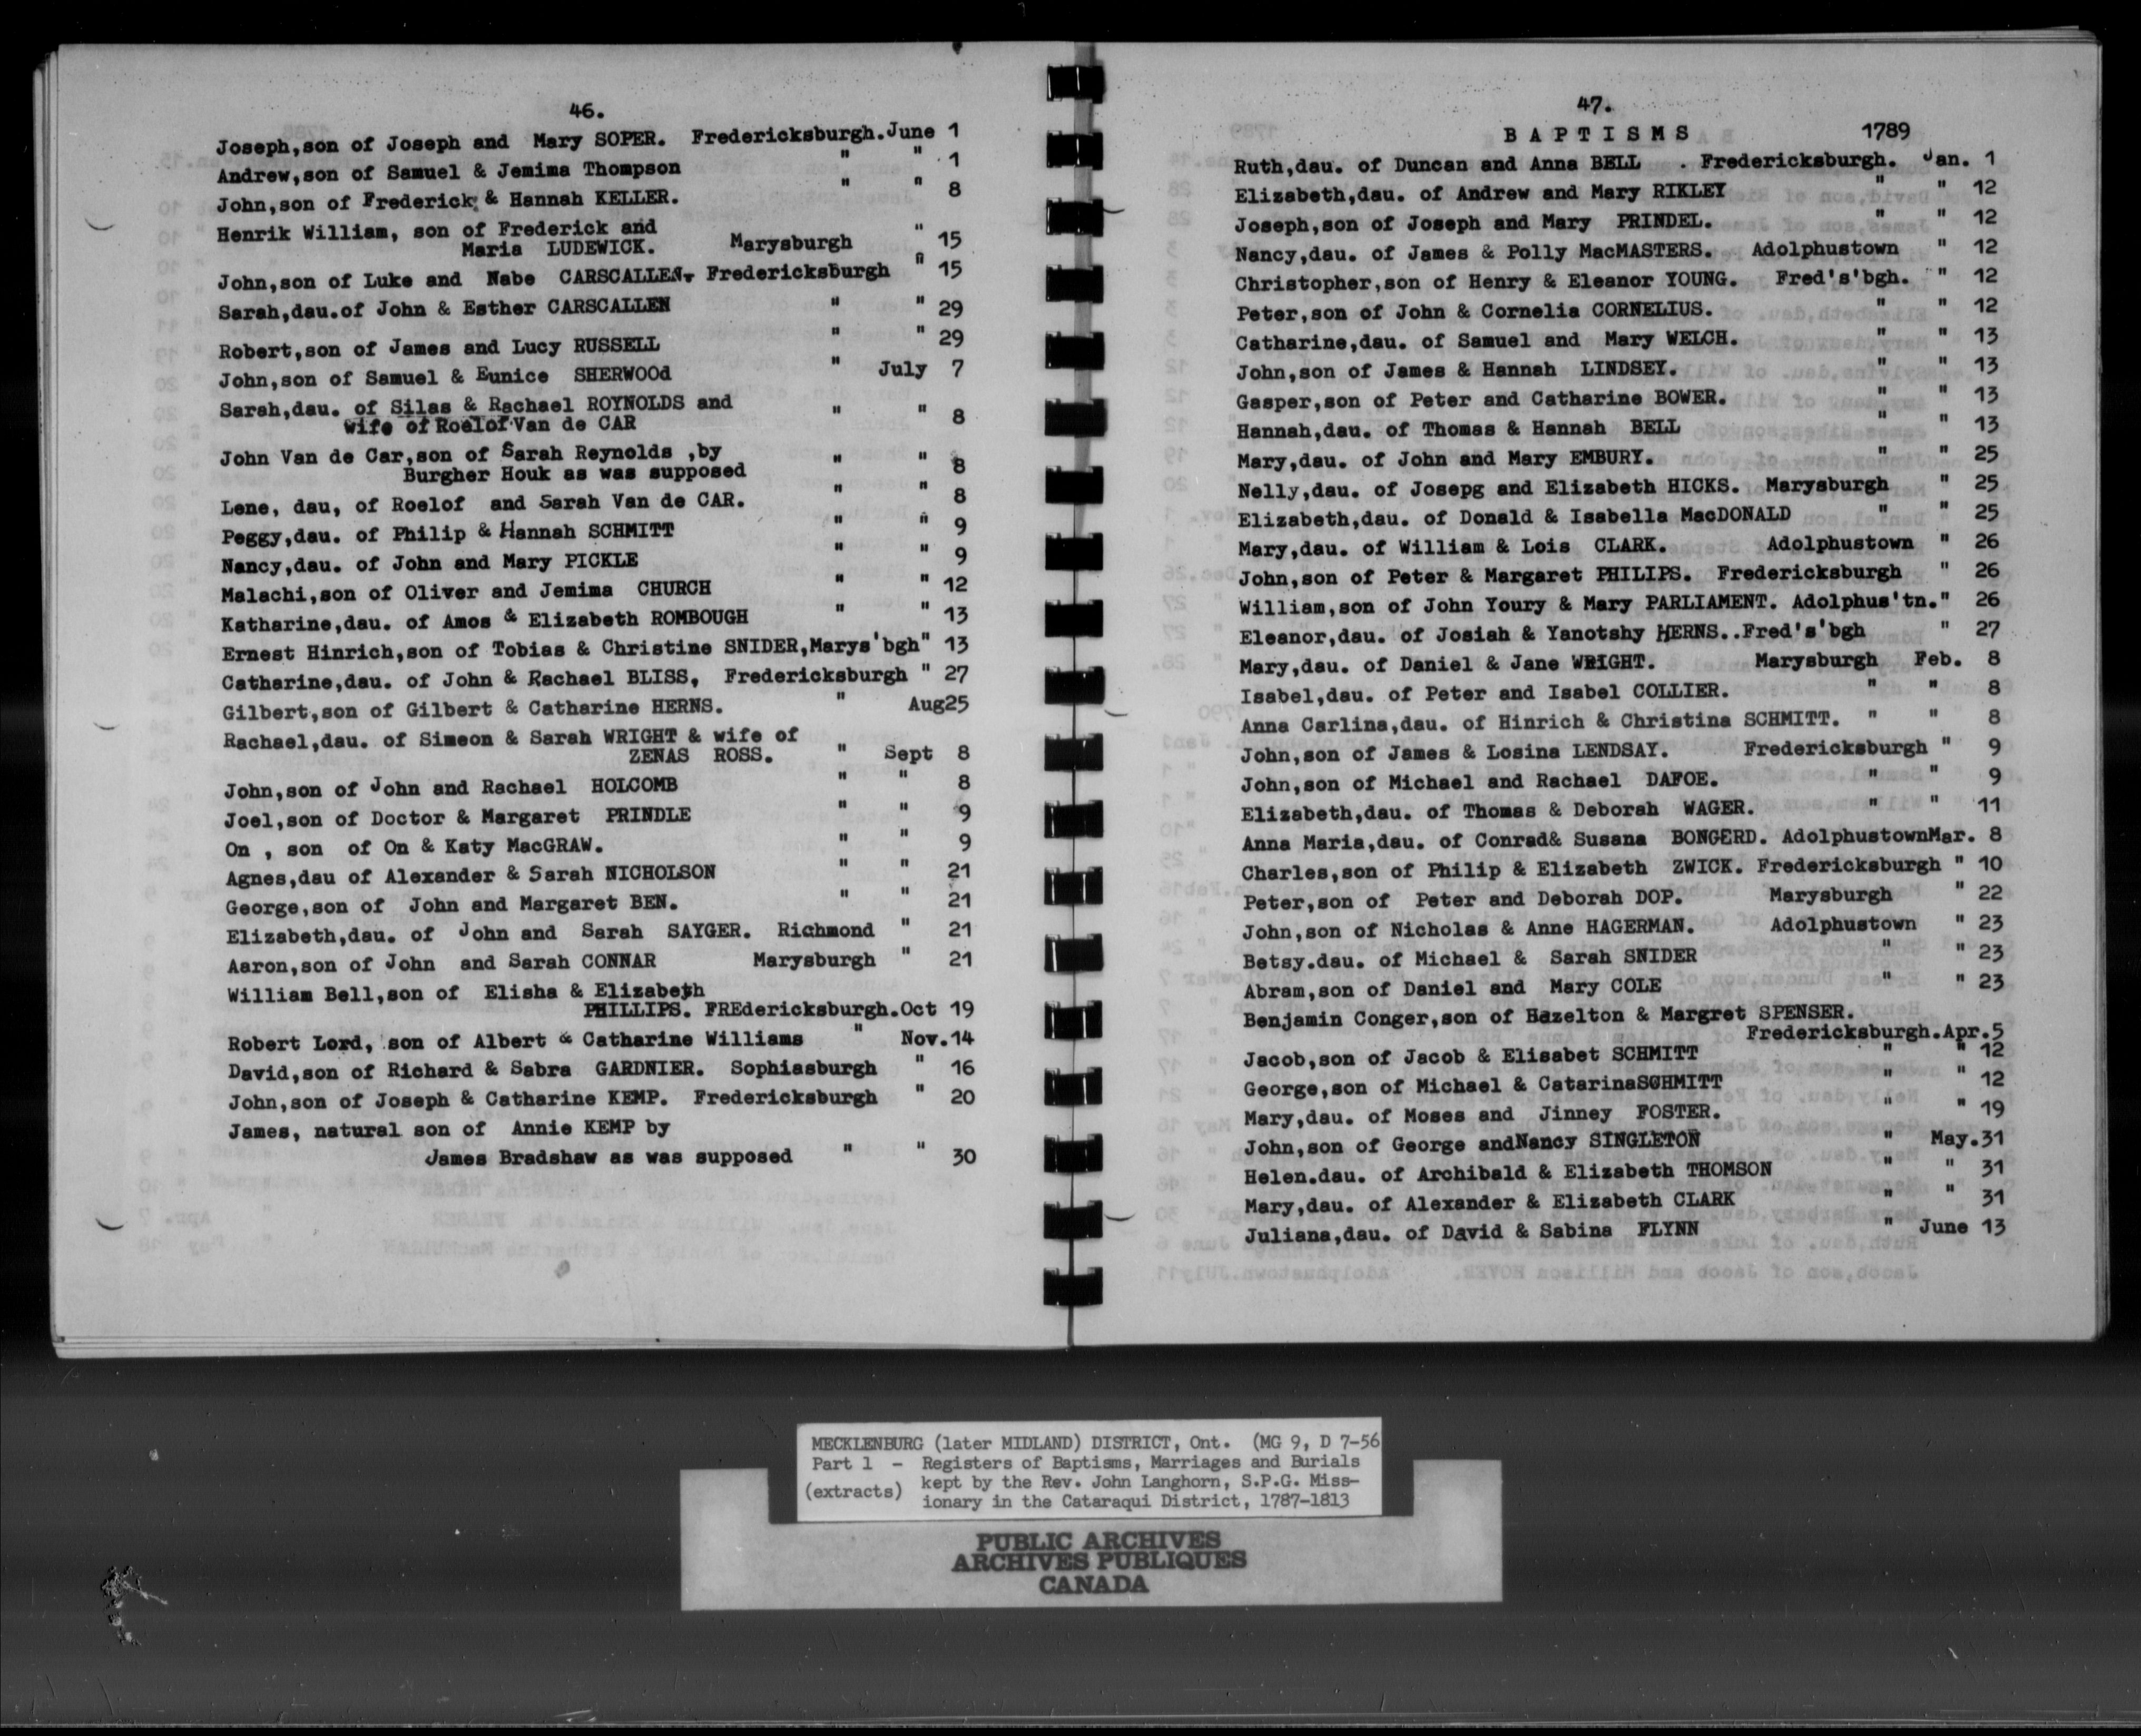 46.
Joseph,son of Joseph and Mary SOPER. Fredericksburgh.June 1
Andrew,son of Samuel & Jemima Thompson " " 1
John,son of Frederick & Hannah KELLER. " " 8
Henrik William, son of Frederick and
Maria LUDEWICK. Marysburgh " 15
John,son of Luke and Nabe CARSCALLEN. Fredericksburgh " 15
Sarah,dau.of John & Esther CARSCALLEN " " 29
Robert,son of James and Lucy RUSSELL " " 29
John,son of Samuel & Eunice SHERWOOd " July 7
Sarah,dau. of Silas & Rachael ROYNOLDS and
wife of Roelof Van de CAR " " 8
John Van de Car,son of Sarah Reynolds ,by
Burgher Houk as was supposed " " 8
Lene, dau, of Roelof and Sarah Van de CAR. " " 8
Peggy,dau. of Philip & Hannah SCHMITT " " 9
Nancy,dau. of John and Mary PICKLE " " 9
Malachi,son of Oliver and Jemima CHURCH " " 12
Katharine,dau. of Amos & Elizabeth ROMBOUGH " " 13
Ernest Hinrich,son of Tobias & Christine SNIDER,Marys'bgh" 13
Catharine,dau. of John & Rachael BLISS, Fredericksburgh " 27
Gilbert,son of Gilbert & Catharine HERNS. " Aug25
Rachael,dau. of Simeon & Sarah WRIGHT & wife of
ZENAS ROSS. " Sept 8
John,son of John and Rachael HOLCOMB " " 8
Joel,son of Doctor & Margaret PRINDLE " " 9
On , son of On & Katy MacGRAW. " " 9
Agnes,dau of Alexander & Sarah NICHOLSON " " 21
George,son of John and Margaret BEN. " " 21
Elizabeth,dau. of John and Sarah SAYGER. Richmond " 21
Aaron,son of John and Sarah CONNAR Marysburgh " 21
William Bell,son of Elisha & Elizabeth
PHILLIPS. FREdericksburgh.Oct 19
Robert Lord, son of Albert & Catharine Williams " Nov.14
David,son of Richard & Sabra GARDNIER. Sophiasburgh " 16
John,son of Joseph & Catharine KEMP. Fredericksburgh " 20
James, natural son of Annie KEMP by
James Bradshaw as was supposed " " 30
47.
BAPTISMS 1789
Ruth,dau. of Duncan and Anna BELL . Fredericksburgh. Jan. 1
Elizabeth,dau. of Andrew and Mary RIKLEY " " 12
Joseph,son of Joseph and Mary PRINDEL. " " 12
Nancy,dau. of James & Polly MacMASTERS. Adolphustown " 12
Christopher,son of Henry & Eleanor YOUNG. Fred's'bgh. " 12
Peter,son of John & Cornelia CORNELIUS. " " 12
Catharine,dau. of Samuel and Mary WELCH. " " 13
John,son of James & Hannah LINDSEY. " " 13
Gasper,son of Peter and Catharine BOWER. " " 13
Hannah,dau. of Thomas & Hannah BELL " " 13
Mary,dau. of John and Mary EMBURY. " " 25
Nelly,dau. of Josepg and Elizabeth HICKS. Marysburgh " 25
Elizabeth,dau. of Donald & Isabella MacDONALD " " 25
Mary,dau. of William & Lois CLARK. Adolphustown " 26
John,son of Peter & Margaret PHILIPS. Fredericksburgh " 26
William,son of John Youry & Mary PARLIAMENT. Adolphus'tn." 26
Eleanor,dau. of Josiah & Yanotshy HERNS..Fred's'bgh " 27
Mary,dau. of Daniel & Jane WRIGHT. Marysburgh Feb. 8
Isabel,dau. of Peter and Isabel COLLIER. " " 8
Anna Carlina,dau. of Hinrich & Christina SCHMITT. " " 8
John,son of James & Losina LENDSAY. Fredericksburgh " 9
John,son of Michael and Rachael DAFOE. " " 9
Elizabeth,dau. of Thomas & Deborah WAGER. " " 11
Anna Maria,dau. of Conrad& Susana BONGERD. AdolphustownMar. 8
Charles,son of Philip & Elizabeth ZWICK. Fredericksburgh " 10
Peter,son of Peter and Deborah DOP. Marysburgh " 22
John,son of Nicholas & Anne HAGERMAN. Adolphustown " 23
Betsy.dau. of Michael & Sarah SNIDER " " 23
Abram,son of Daniel and Mary COLE " " 23
Benjamin Conger,son of Hazelton & Margret SPENSER.
Fredericksburgh.Apr.5
Jacob,son of Jacob & Elisabet SCHMITT " " 12
George,son of Michael & CatarinaSCHMITT " " 12
Mary,dau. of Moses and Jinney FOSTER. " " 19
John,son of George andNancy SINGLETON " May.31
Helen.dau. of Archibald & Elizabeth THOMSON " " 31
Mary,dau. of Alexander & Elizabeth CLARK " " 31
Juliana,dau. of David & Sabina FLYNN " June 13
MECKLENBURG (later MIDLAND) DISTRICT, Ont. (MG 9, D 7-56
Part 1 - Registers of Baptisms, Marriages and Burials
(extracts) kept by the Rev. John Langhorn, S.P.G. Miss-
ionary in the Cataraqui District, 1787-1813
PUBLIC ARCHIVES
ARCHIVES PUBLIQUES
CANADA